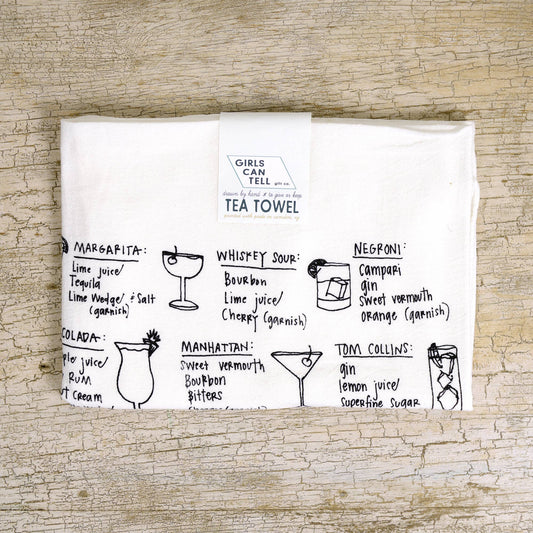 GIRLS
CAN
TELL
gift co.
drawn by hand & to give or keep
TEA TOWEL
MARGARITA:
Lime juice/
Tequila
Lime Wedge/ & Salt
(garnish)
WHISKEY SOUR:
Bourbon
Lime juice/
Cherry (garnish)
NEGRONI:
Campari
gin
sweet vermouth
orange (garnish)
COLADA:
juice/
RUM
Cream
MANHATTAN:
sweet vermouth
Bourbon
Bitters
TOM COLLINS:
gin
lemon juice/
superfine sugar